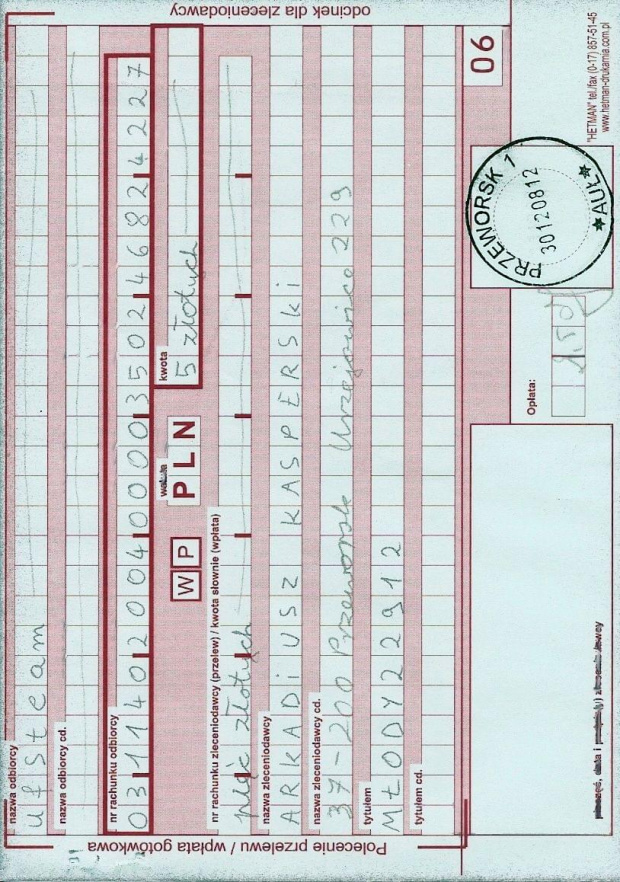 Polecenie przelewu / wpłata gotówkowa
odcinek dla zleceniodawcy
nazwa odbiorcy
ufsteam
nazwa odbiorcy cd.
nr rachunku odbiorcy
03114020040000350246824227
WP
waluta
PLN
kwota
5 złotych
nr rachunku zleceniodawcy (przelew) / kwota słownie (wpłata)
pięć złotych
nazwa zleceniodawcy
ARKADiUSZ KASPERSKi
nazwa zleceniodawcy cd.
37-200 Przeworsk Urzejowice 229
tytułem
MŁODY22912
tytułem cd.
06
Opłata:
PRZEWORSK 1
30120812
*AUŁ*
"HETMAN" tel./fax (0-17) 857-51-45
www.hetman-drukarnia.com.pl